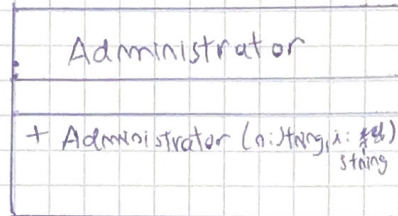 Administrator
+ Administrator (n: string, i: string)